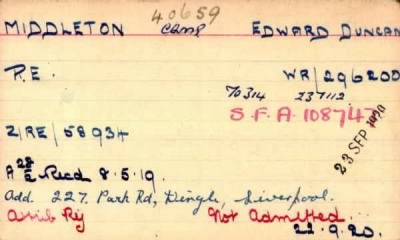 40659
MIDDLETON Camp EDWARD DUNCAN
R.E. WR/296200
70314 237112
S.F.A. 108747
Z/RE/58934
23 SEP 1920
A 28/2 Recd 8.5.19.
Add. 227. Park Rd, Dingle, Liverpool.
Not Admitted
22.9.20.